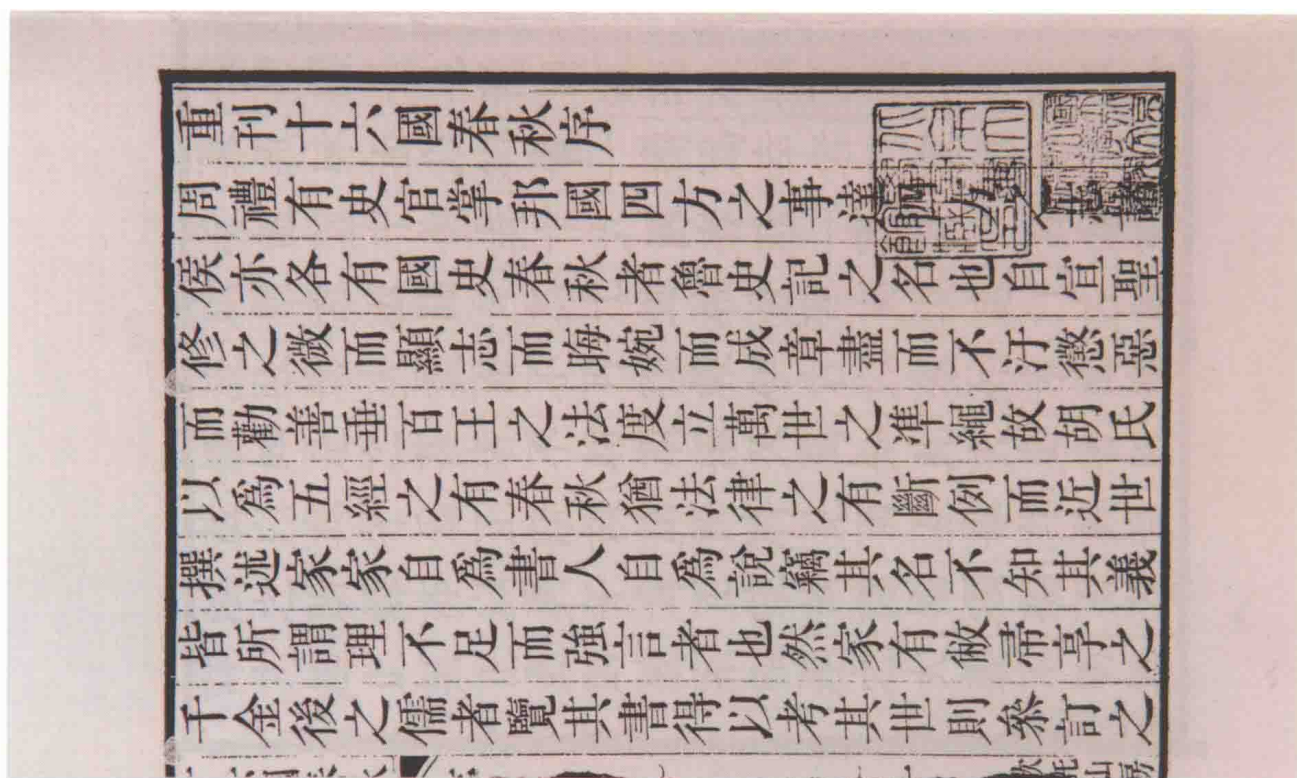 重刊十六國春秋序
周禮有史官掌邦國四方之事達四方之志諸
侯亦各有國史春秋者魯史記之名也自宣聖
修之微而顯志而晦婉而成章盡而不汙懲惡
而勸善垂百王之法度立萬世之準繩故胡氏
以爲五經之有春秋猶法律之有斷例而近世
撰述家家自爲書人自爲說竊其名不知其義
皆所謂理不足而強言者也然家有敝帚享之
千金後之儒者覽其書得以考其世則叅訂之